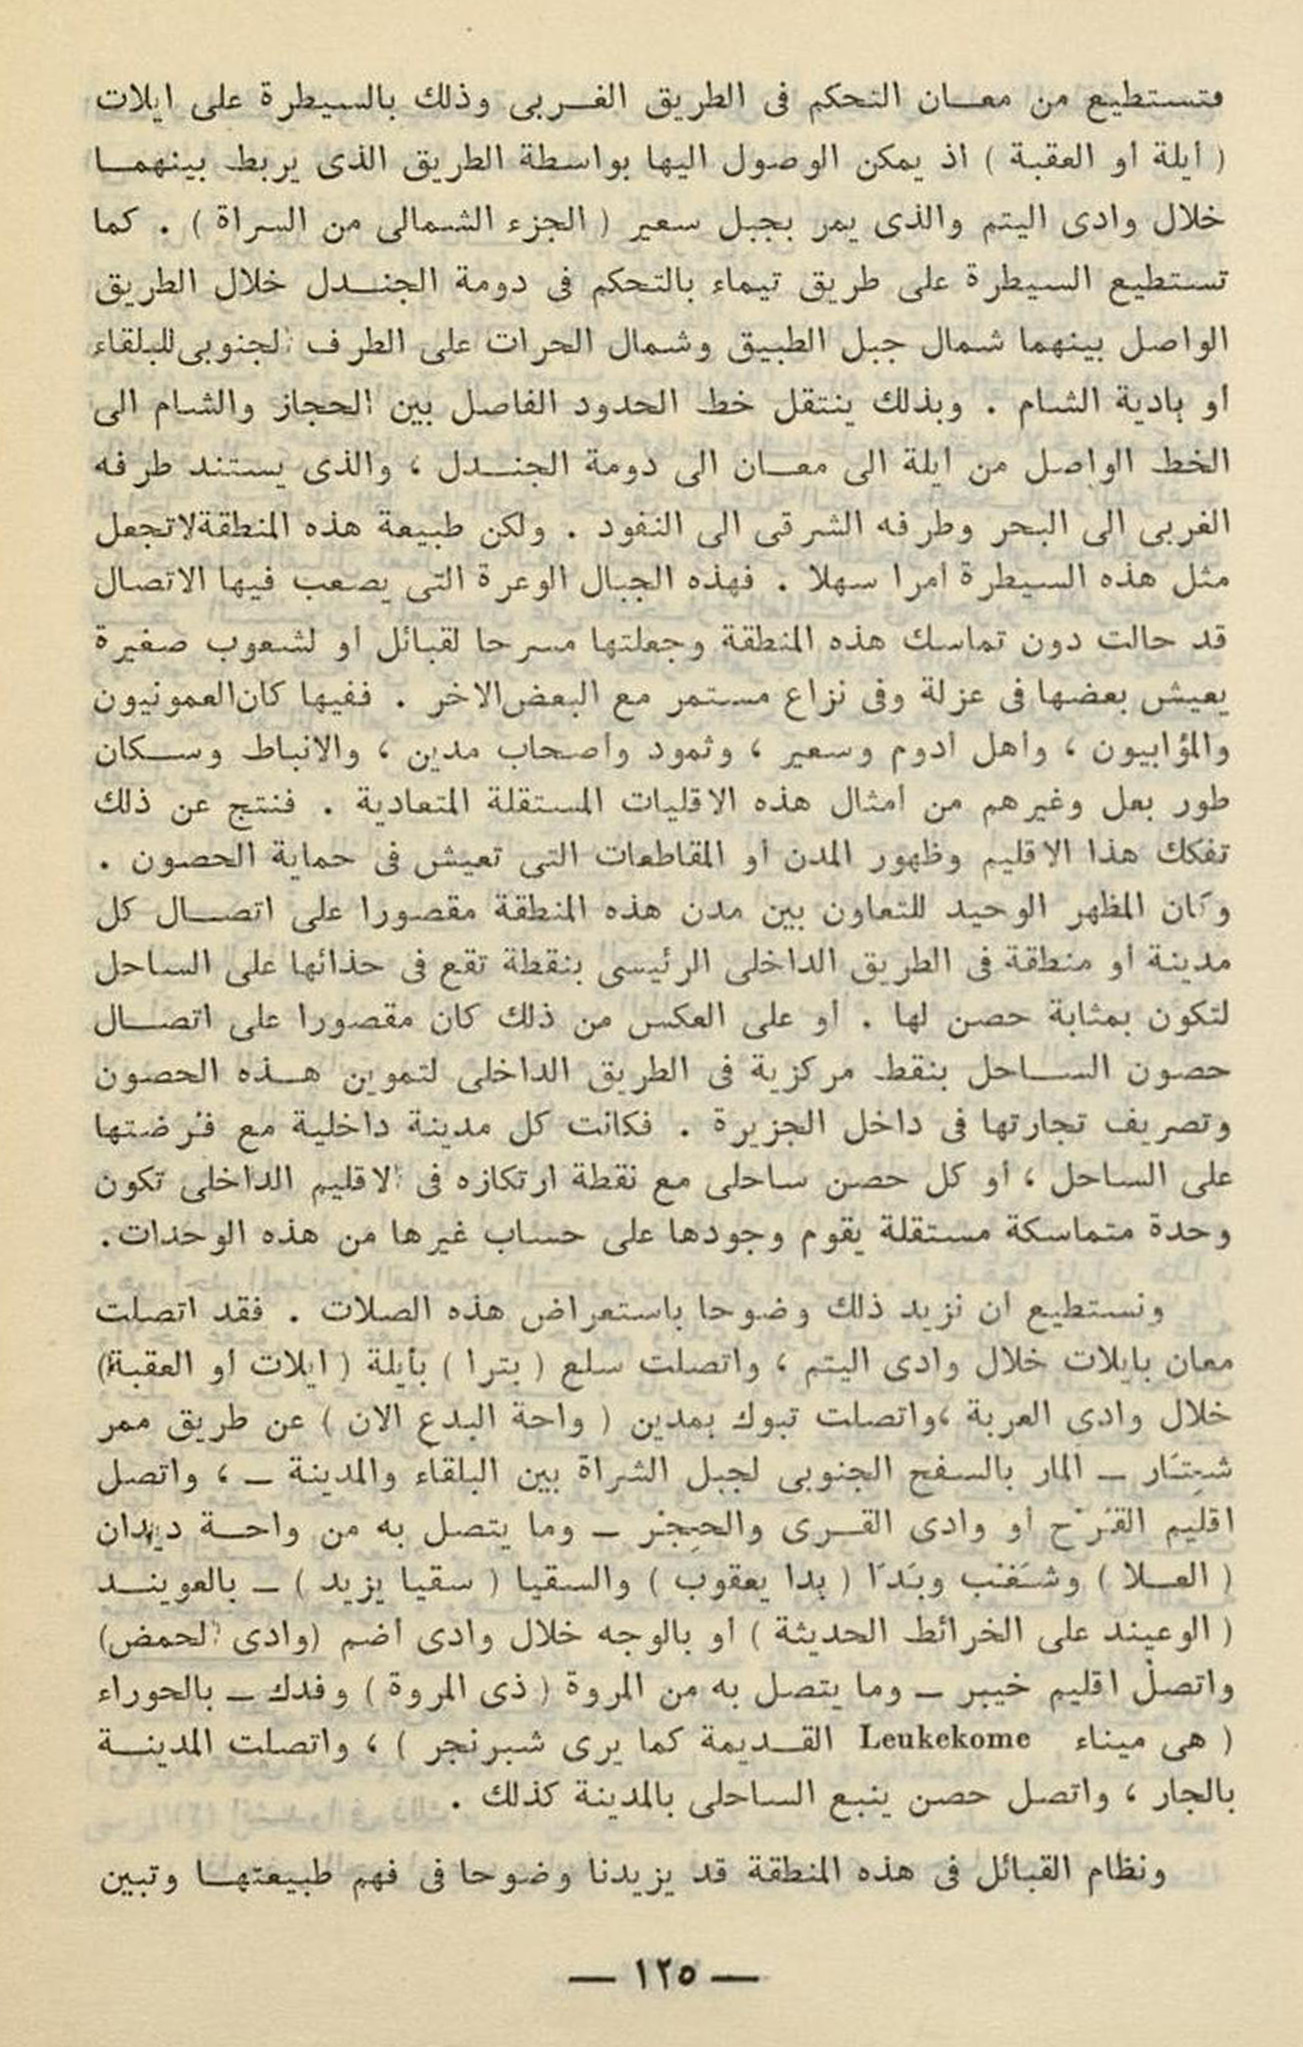 فتستطيع من معان التحكم فى الطريق الغربى وذلك بالسيطرة على ايلات
( أيلة أو العقبة ) اذ يمكن الوصول اليها بواسطة الطريق الذى يربط بينهما
خلال وادى اليتم والذى يمر بجبل سعير ( الجزء الشمالى من السراة ) . كما
تستطيع السيطرة على طريق تيماء بالتحكم فى دومة الجندل خلال الطريق
الواصل بينهما شمال جبل الطبيق وشمال الحرات على الطرف الجنوبى للبلقاء
أو بادية الشام . وبذلك ينتقل خط الحدود الفاصل بين الحجاز والشام الى
الخط الواصل من أيلة الى معان الى دومة الجندل ، والذى يستند طرفه
الغربى الى البحر وطرفه الشرقى الى النفود . ولكن طبيعة هذه المنطقة لاتجعل
مثل هذه السيطرة أمرا سهلا . فهذه الجبال الوعرة التى يصعب فيها الاتصال
قد حالت دون تماسك هذه المنطقة وجعلتها مسرحا لقبائل أو لشعوب صغيرة
يعيش بعضها فى عزلة وفى نزاع مستمر مع البعض الاخر . ففيها كان العمونيون
والمؤابيون ، وأهل أدوم وسعير ، وثمود وأصحاب مدين ، والانباط وسكان
طور بعل وغيرهم من أمثال هذه الاقليات المستقلة المتعادية . فنتج عن ذلك
تفكك هذا الاقليم وظهور المدن أو المقاطعات التى تعيش فى حماية الحصون .
وكان المظهر الوحيد للتعاون بين مدن هذه المنطقة مقصورا على اتصال كل
مدينة أو منطقة فى الطريق الداخلى الرئيسى بنقطة تقع فى حذائها على الساحل
لتكون بمثابة حصن لها . أو على العكس من ذلك كان مقصورا على اتصال
حصون الساحل بنقط مركزية فى الطريق الداخلى لتموين هذه الحصون
وتصريف تجارتها فى داخل الجزيرة . فكانت كل مدينة داخلية مع فُرضتها
على الساحل ، أو كل حصن ساحلى مع نقطة ارتكازه فى الاقليم الداخلى تكون
وحدة متماسكة مستقلة يقوم وجودها على حساب غيرها من هذه الوحدات .
ونستطيع أن نزيد ذلك وضوحا باستعراض هذه الصلات . فقد اتصلت
معان بايلات خلال وادى اليتم ، واتصلت سلع ( بترا ) بأيلة ( ايلات أو العقبة )
خلال وادى العربة ، واتصلت تبوك بمدين ( واحة البدع الان ) عن طريق ممر
شِتَار – المار بالسفح الجنوبى لجبل الشراة بين البلقاء والمدينة – ، واتصل
اقليم القُرْح أو وادى القرى والحِجْر – وما يتصل به من واحة ديدان
( العلا ) وشَغْب وبَدَا ( بدا يعقوب ) والسقيا ( سقيا يزيد ) – بالعويند
( الوعيند على الخرائط الحديثة ) أو بالوجه خلال وادى أضم (وادى الحمض)
واتصل اقليم خيبر – وما يتصل به من المروة ( ذى المروة ) وفدك – بالحوراء
( هى ميناء Leukekome القديمة كما يرى شبرنجر ) ، واتصلت المدينة
بالجار ، واتصل حصن ينبع الساحلى بالمدينة كذلك .
ونظام القبائل فى هذه المنطقة قد يزيدنا وضوحا فى فهم طبيعتها وتبين
— ١٢٥ —